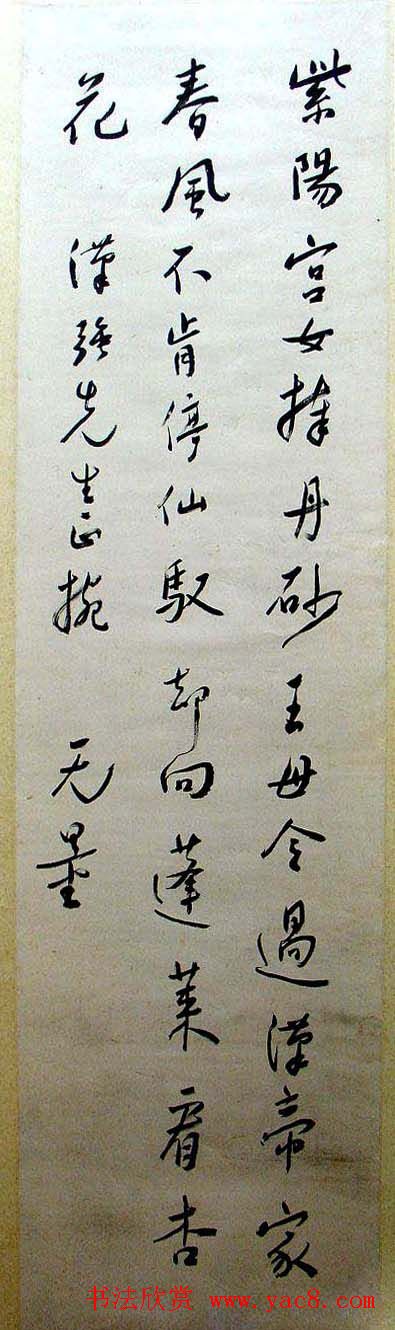 紫陽宮女捧丹砂王母令過漢帝家
春風不肯停仙馭却向蓬萊看杏
花 漢强先生正捥 无量
书法欣赏 www.yac8.com